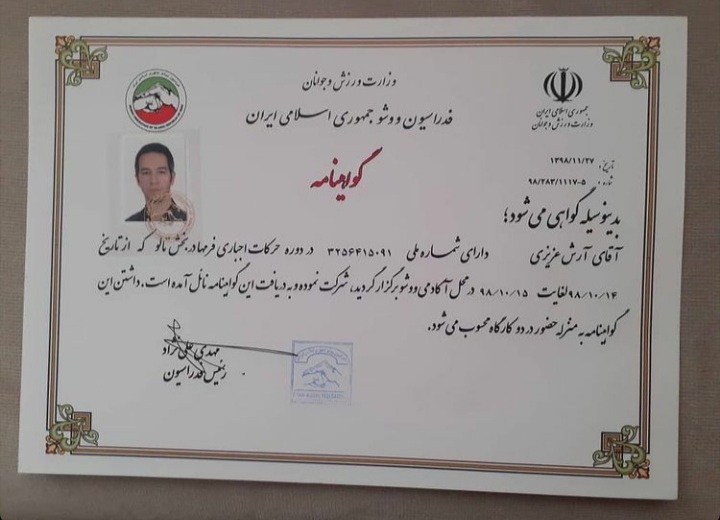 وزارت ورزش و جوانان
فدراسیون ووشو جمهوری اسلامی ایران
جمهوری اسلامی ایران
وزارت ورزش و جوانان
گواهینامه
تاریخ: ۱۳۹۸/۱۱/۲۷
شماره: ۹۸/۲۸۳/۱۱۱۷-۵
بدینوسیله گواهی می شود؛
آقای آرش عزیزی دارای شماره ملی ۳۲۵۶۴۱۵۰۹۱ در دوره حرکات اجباری فرمها در بخش تالو که از تاریخ
۹۸/۱۰/۱۴ لغایت ۹۸/۱۰/۱۵ در محل آکادمی ووشو برگزار گردید، شرکت نموده و به دریافت این گواهینامه نائل آمده است. داشتن این
گواهینامه به منزله حضور در دو کارگاه محسوب می شود.
مهدی علی نژاد
رئیس فدراسیون